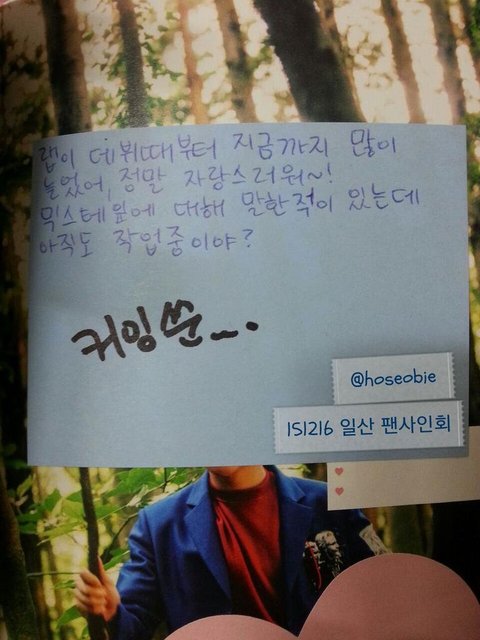 랩이 데뷔때부터 지금까지 많이
늘었어, 정말 자랑스러워~!
믹스테잎에 대해 말한적이 있는데
아직도 작업중이야?
커밍쑨_ _.
@hoseobie
151216 일산 팬사인회